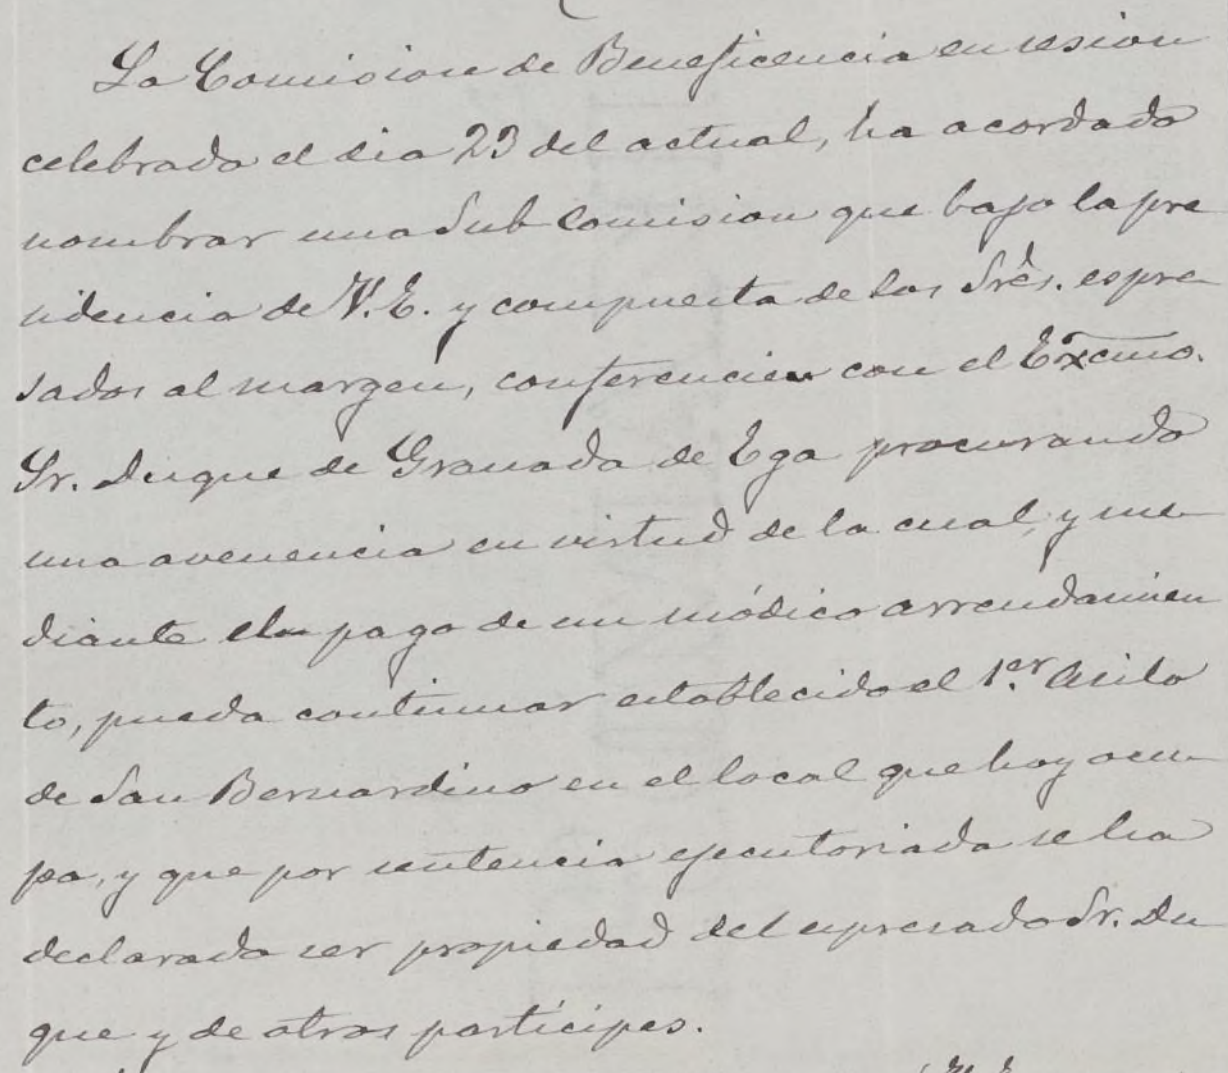 La Comision de Beneficencia en sesion
celebrada el dia 23 del actual, ha acordado
nombrar una Sub Comision que bajo la pre
sidencia de V.E. y compuesta de los Srēs. espre
sados al margen, conferencien con el Excmo.
Sr. Duque de Granada de Ega procurando
una avenencia en virtud de la cual, y me
diante el pago de un módico arrendamien
to, pueda continuar establecido el 1.er Asilo
de San Bernardino en el local que hoy ocu
pa, y que por sentencia ejecutoriada se ha
declarado ser propiedad del espresado Sr. Du
que y de otros partícipes.